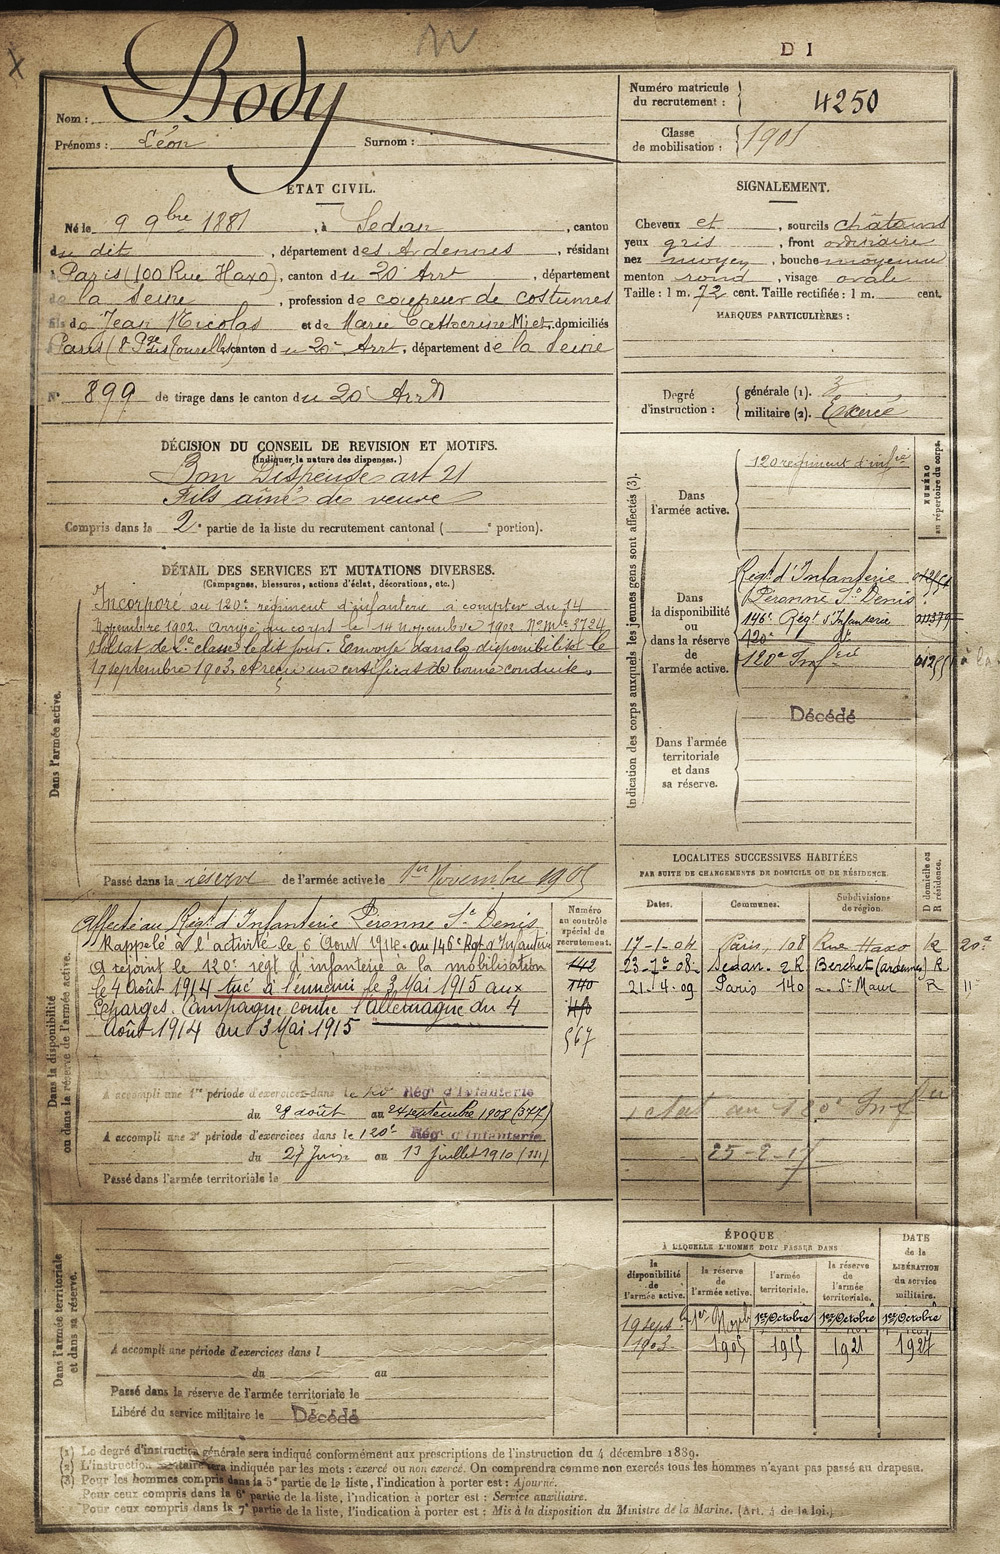 D I
Nom : Body
Prénoms : Léon Surnom :
Numéro matricule du recrutement : 4250
Classe de mobilisation : 1901
ÉTAT CIVIL.
Né le 9 9bre 1881, à Sedan, canton
du dit, département des Ardennes, résidant
à Paris (100 Rue Haxo), canton du 20e Arrt, département
de la Seine, profession de coupeur de costumes
fils de Jean Nicolas et de Marie Catherine Miet, domiciliés
Paris (8 Pge des Tourelles) canton du 20e Arrt, département de la Seine
N° 899 de tirage dans le canton du 20e Arrdt
SIGNALEMENT.
Cheveux et, sourcils châtains
yeux gris, front ordinaire
nez moyen, bouche moyenne
menton rond, visage ovale
Taille : 1 m. 72 cent. Taille rectifiée : 1 m. cent.
MARQUES PARTICULIÈRES :
Degré d'instruction : générale (1). 3
militaire (2). Exercé
DÉCISION DU CONSEIL DE REVISION ET MOTIFS.
(Indiquer la nature des dispenses.)
Bon Dispensé art 21
Fils aîné de veuve
Compris dans la 2e partie de la liste du recrutement cantonal ( e portion).
DÉTAIL DES SERVICES ET MUTATIONS DIVERSES.
(Campagnes, blessures, actions d'éclat, décorations, etc.)
Dans l'armée active.
Incorporé au 120e régiment d'infanterie à compter du 14
Novembre 1902. Arrivé au corps le 14 novembre 1902 No Mle 3724
Soldat de 2e classe le dit jour. Envoyé dans la disponibilité le
19 septembre 1903 et reçu un certificat de bonne conduite.
Passé dans la réserve de l'armée active le 1er Novembre 1905
Indication des corps auxquels les jeunes gens sont affectés (3).
NUMÉRO au répertoire du corps.
Dans l'armée active.
120 régiment d'infie
Dans la disponibilité ou dans la réserve de l'armée active.
Régt d'Infanterie
Péronne St Denis
146e Régt d'Infanterie
120e
120e Infrie
Décédé
Dans l'armée territoriale et dans sa réserve.
LOCALITÉS SUCCESSIVES HABITÉES
PAR SUITE DE CHANGEMENTS DE DOMICILE OU DE RÉSIDENCE.
Dates. Communes. Subdivisions de région. D domicile ou R résidence.
17-1-04 Paris, 108 Rue Haxo R 20e
Sedan. 2 R. Berchet (Ardennes) R
21-4-09 Paris 140 St Maur R 11e
25-2-17
Dans la disponibilité ou dans la réserve de l'armée active.
Numéro au contrôle spécial du recrutement.
142
140
567
Affecté au Régt d'Infanterie Péronne St Denis
Rappelé à l'activité le 6 Août 1914 au 146e Rgt d'Infanterie
A rejoint le 120e régt d'infanterie à la mobilisation
le 4 août 1914 tué à l'ennemi le 3 Mai 1915 aux
Eparges. Campagne contre l'Allemagne du 4
Août 1914 au 3 Mai 1915
A accompli une 1re période d'exercices dans le Rég' d'Infanterie
du 29 août au 24 septembre 1908 (377)
A accompli une 2e période d'exercices dans le 120e Rég' d'Infanterie
du 27 Juin au 13 juillet 1910
Passé dans l'armée territoriale le
Dans l'armée territoriale et dans sa réserve.
A accompli une période d'exercices dans l
du au
Passé dans la réserve de l'armée territoriale le
Libéré du service militaire le Décédé
ÉPOQUE
À LAQUELLE L'HOMME DOIT PASSER DANS
DATE de la LIBÉRATION du service militaire.
la disponibilité de l'armée active. la réserve de l'armée active. l'armée territoriale. la réserve de l'armée territoriale.
19 sept. 1903 1er Novb 1905 1er Octobre 1915 1er Octobre 1921 1er Octobre 1927
(1) Le degré d'instruction générale sera indiqué conformément aux prescriptions de l'instruction du 4 décembre 1889.
(2) L'instruction militaire sera indiquée par les mots : exercé ou non exercé. On comprendra comme non exercés tous les hommes n'ayant pas passé au drapeau.
(3) Pour les hommes compris dans la 5e partie de la liste, l'indication à porter est : Ajourné.
Pour ceux compris dans la 6e partie de la liste, l'indication à porter est : Service auxiliaire.
Pour ceux compris dans la 7e partie de la liste, l'indication à porter est : Mis à la disposition du Ministre de la Marine. (Art. 4 de la loi.)